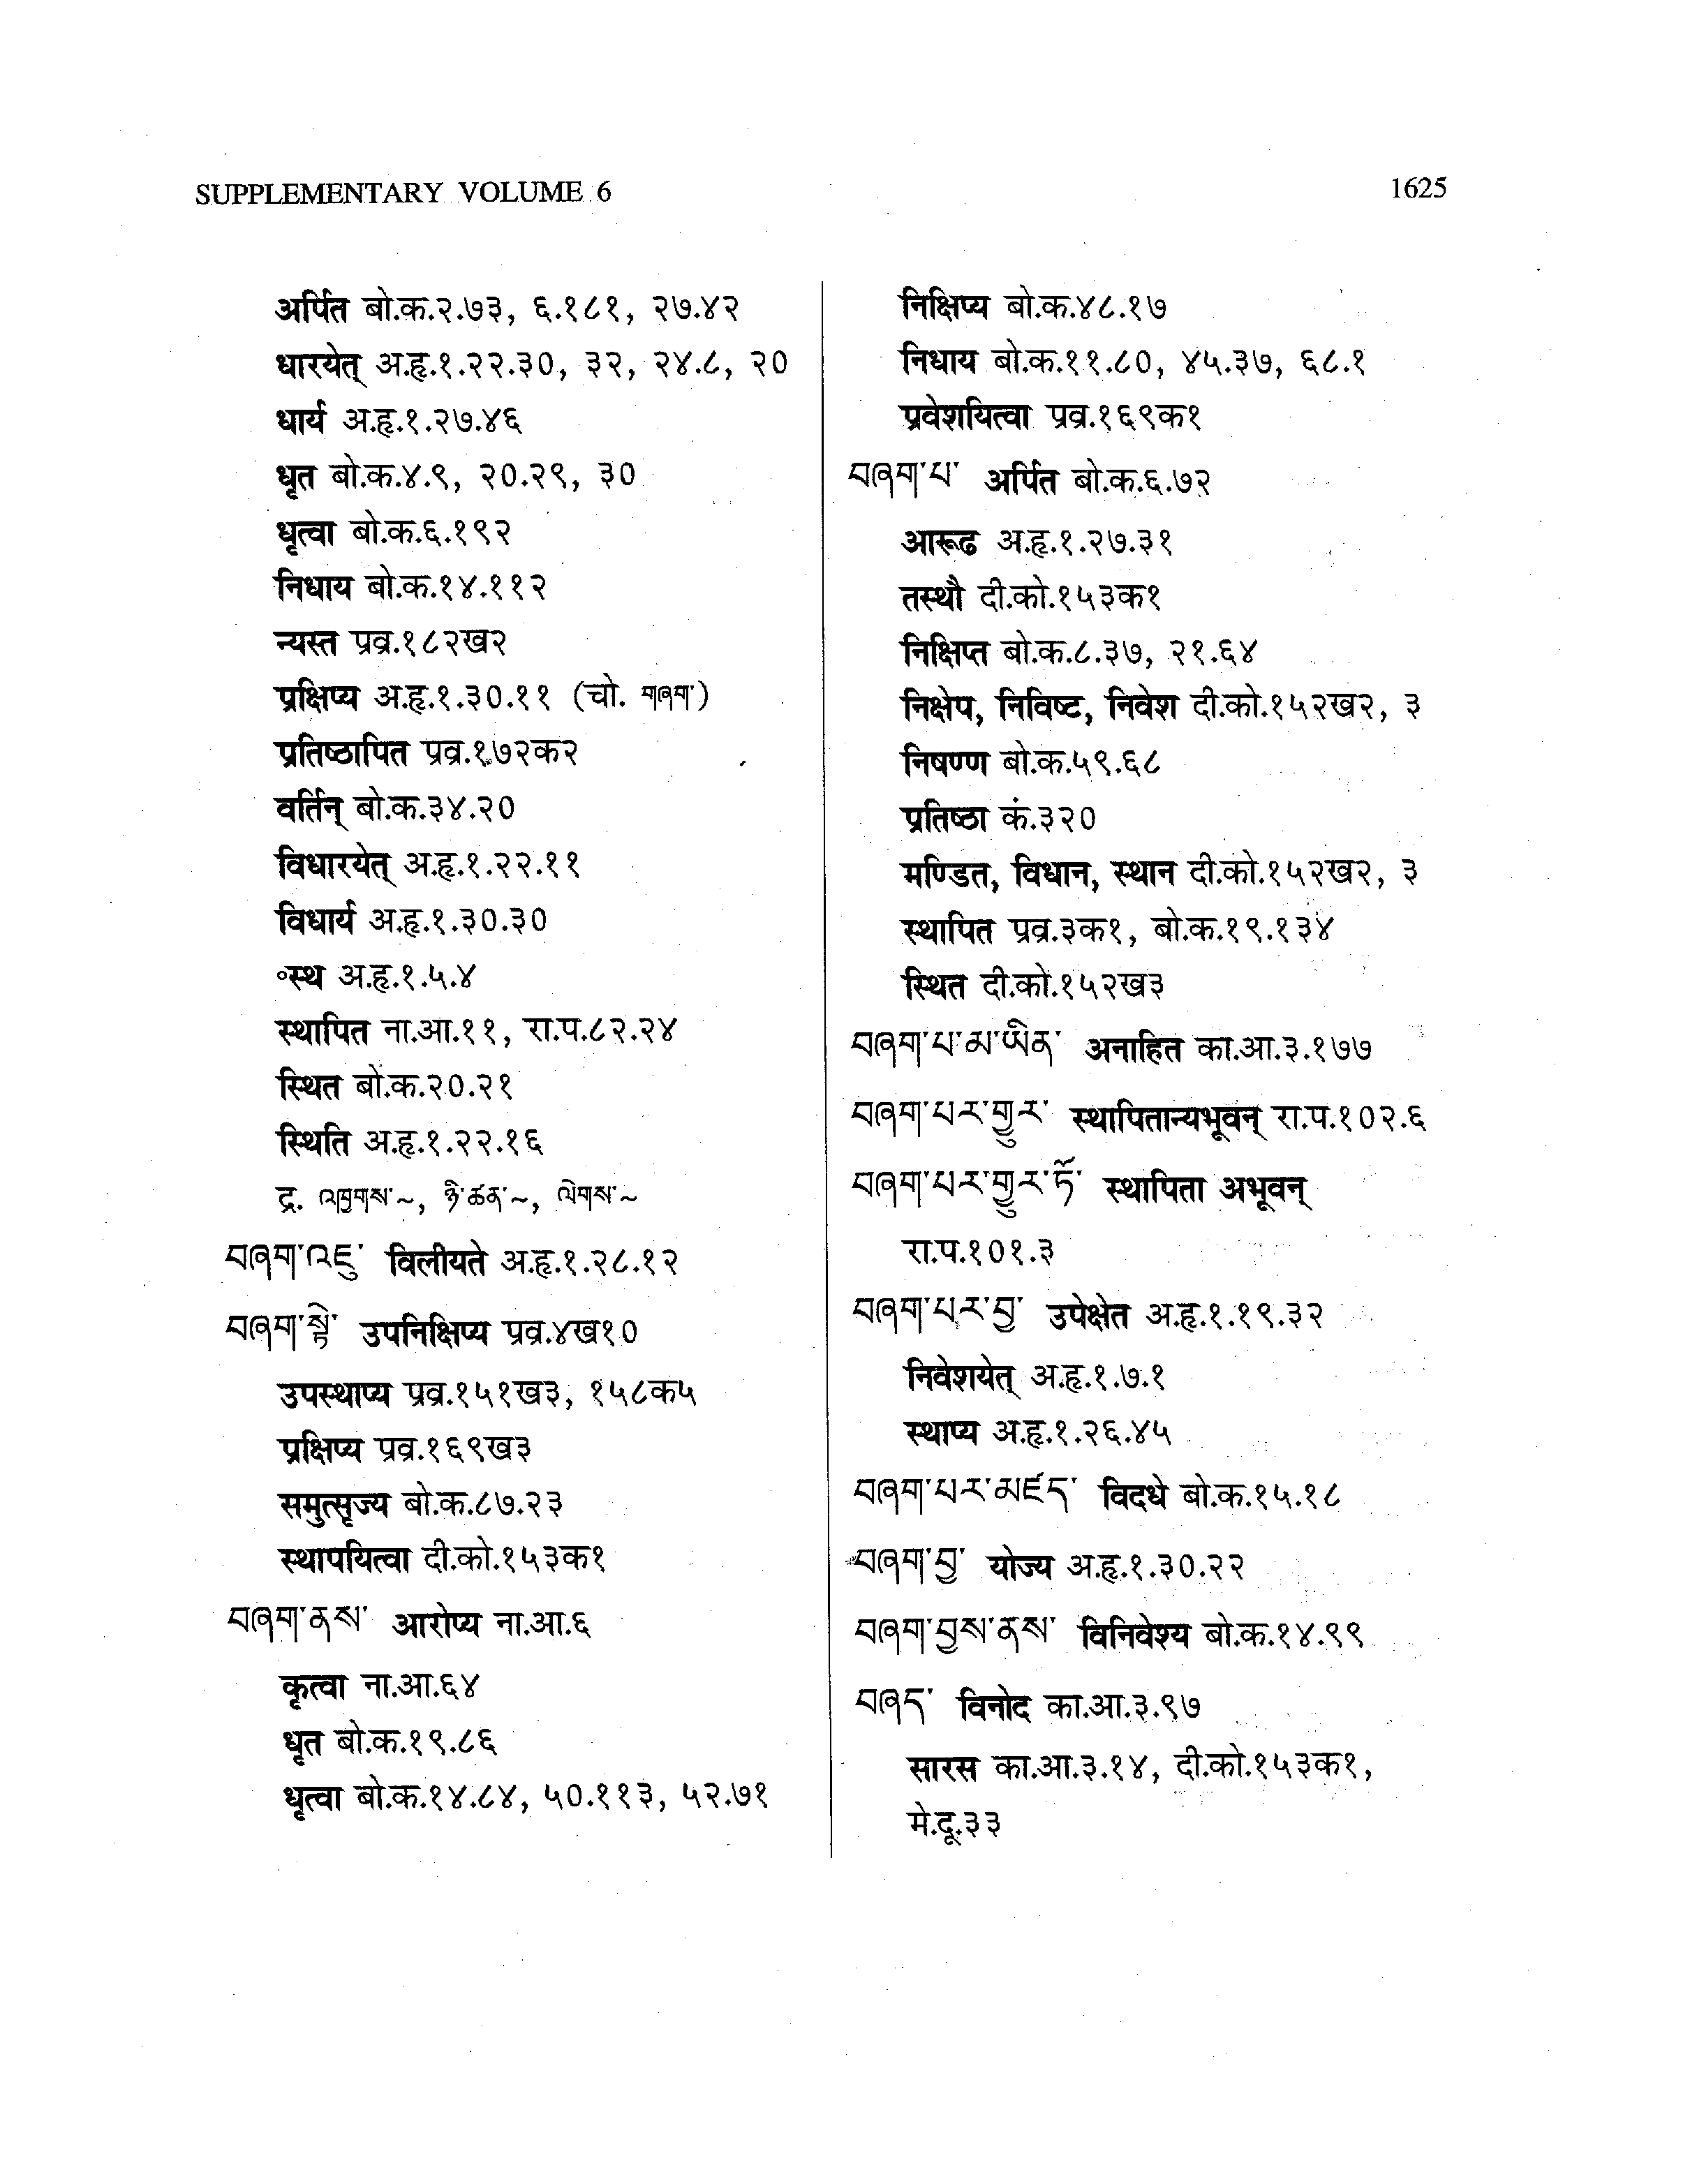 SUPPLEMENTARY VOLUME 6
1625
अर्पित बो.क.२.७३, ६.१८१, २७.४२
धारयेत् अ.हृ.१.२२.३०, ३२, २४.८, २०
धार्य अ.हृ.१.२७.४६
धृत बो.क.४.९, २०.२९, ३०
धृत्वा बो.क.६.१९२
निधाय बो.क.१४.११२
न्यस्त प्रव्र.१८२ख२
प्रक्षिप्य अ.हृ.१.३०.११ (चो. གཞག་)
प्रतिष्ठापित प्रव्र.१७२क२
वर्तिन् बो.क.३४.२०
विधारयेत् अ.हृ.१.२२.११
विधार्य अ.हृ.१.३०.३०
॰स्थ अ.हृ.१.५.४
स्थापित ना.आ.११, रा.प.८२.२४
स्थित बो.क.२०.२१
स्थिति अ.हृ.१.२२.१६
द्र. འཁྲུགས་~, ཉེ་ཚན་~, ལེགས་~
བཞག་འཇུ་ विलीयते अ.हृ.१.२८.१२
བཞག་སྟེ་ उपनिक्षिप्य प्रव्र.४ख१०
उपस्थाप्य प्रव्र.१५१ख३, १५८क५
प्रक्षिप्य प्रव्र.१६९ख३
समुत्सृज्य बो.क.८७.२३
स्थापयित्वा दी.को.१५३क१
བཞག་ནས་ आरोप्य ना.आ.६
कृत्वा ना.आ.६४
धृत बो.क.१९.८६
धृत्वा बो.क.१४.८४, ५०.११३, ५२.७१
निक्षिप्य बो.क.४८.१७
निधाय बो.क.११.८०, ४५.३७, ६८.१
प्रवेशयित्वा प्रव्र.१६९क१
བཞག་པ་ अर्पित बो.क.६.७२
आरूढ अ.हृ.१.२७.३१
तस्थौ दी.को.१५३क१
निक्षिप्त बो.क.८.३७, २१.६४
निक्षेप, निविष्ट, निवेश दी.को.१५२ख२, ३
निषण्ण बो.क.५९.६८
प्रतिष्ठा कं.३२०
मण्डित, विधान, स्थान दी.को.१५२ख२, ३
स्थापित प्रव्र.३क१, बो.क.१९.१३४
स्थित दी.को.१५२ख३
བཞག་པ་མ་ཡིན་ अनाहित का.आ.३.१७७
བཞག་པར་གྱུར་ स्थापितान्यभूवन् रा.प.१०२.६
བཞག་པར་གྱུར་ཏོ་ स्थापिता अभूवन्
रा.प.१०१.३
བཞག་པར་བྱ་ उपेक्षेत अ.हृ.१.१९.३२
निवेशयेत् अ.हृ.१.७.१
स्थाप्य अ.हृ.१.२६.४५
བཞག་པར་མཛད་ विदधे बो.क.१५.१८
བཞག་བྱ་ योज्य अ.हृ.१.३०.२२
བཞག་བྱས་ནས་ विनिवेश्य बो.क.१४.९९
བཞད་ विनोद का.आ.३.९७
सारस का.आ.३.१४, दी.को.१५३क१,
मे.दू.३३